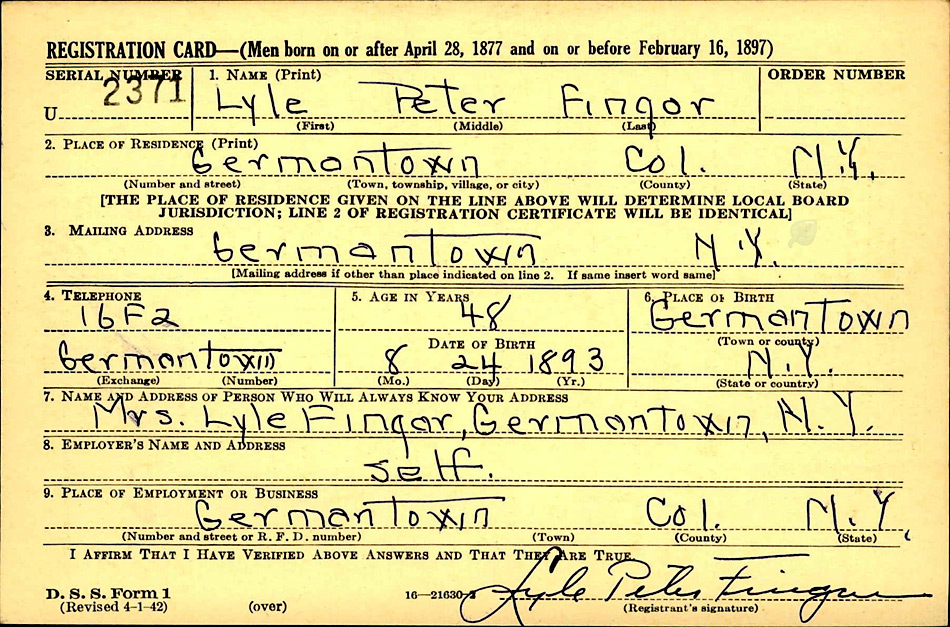 REGISTRATION CARD—(Men born on or after April 28, 1877 and on or before February 16, 1897)
SERIAL NUMBER 1. NAME (Print) ORDER NUMBER
U 2371 Lyle Peter Fingar
(First) (Middle) (Last)
2. PLACE OF RESIDENCE (Print)
Germantown Col. N.Y.
(Number and street) (Town, township, village, or city) (County) (State)
[THE PLACE OF RESIDENCE GIVEN ON THE LINE ABOVE WILL DETERMINE LOCAL BOARD
JURISDICTION; LINE 2 OF REGISTRATION CERTIFICATE WILL BE IDENTICAL]
3. MAILING ADDRESS
Germantown N.Y.
[Mailing address if other than place indicated on line 2. If same insert word same]
4. TELEPHONE 5. AGE IN YEARS 6. PLACE OF BIRTH
16F2 48 Germantown
DATE OF BIRTH (Town or county)
Germantown 8 24 1893 N.Y.
(Exchange) (Number) (Mo.) (Day) (Yr.) (State or country)
7. NAME AND ADDRESS OF PERSON WHO WILL ALWAYS KNOW YOUR ADDRESS
Mrs. Lyle Fingar, Germantown, N.Y.
8. EMPLOYER'S NAME AND ADDRESS
self.
9. PLACE OF EMPLOYMENT OR BUSINESS
Germantown Col. N.Y.
(Number and street or R. F. D. number) (Town) (County) (State)
I AFFIRM THAT I HAVE VERIFIED ABOVE ANSWERS AND THAT THEY ARE TRUE.
D. S. S. Form 1
(Revised 4-1-42) (over) 16—21630-2 Lyle Peter Fingar
(Registrant's signature)